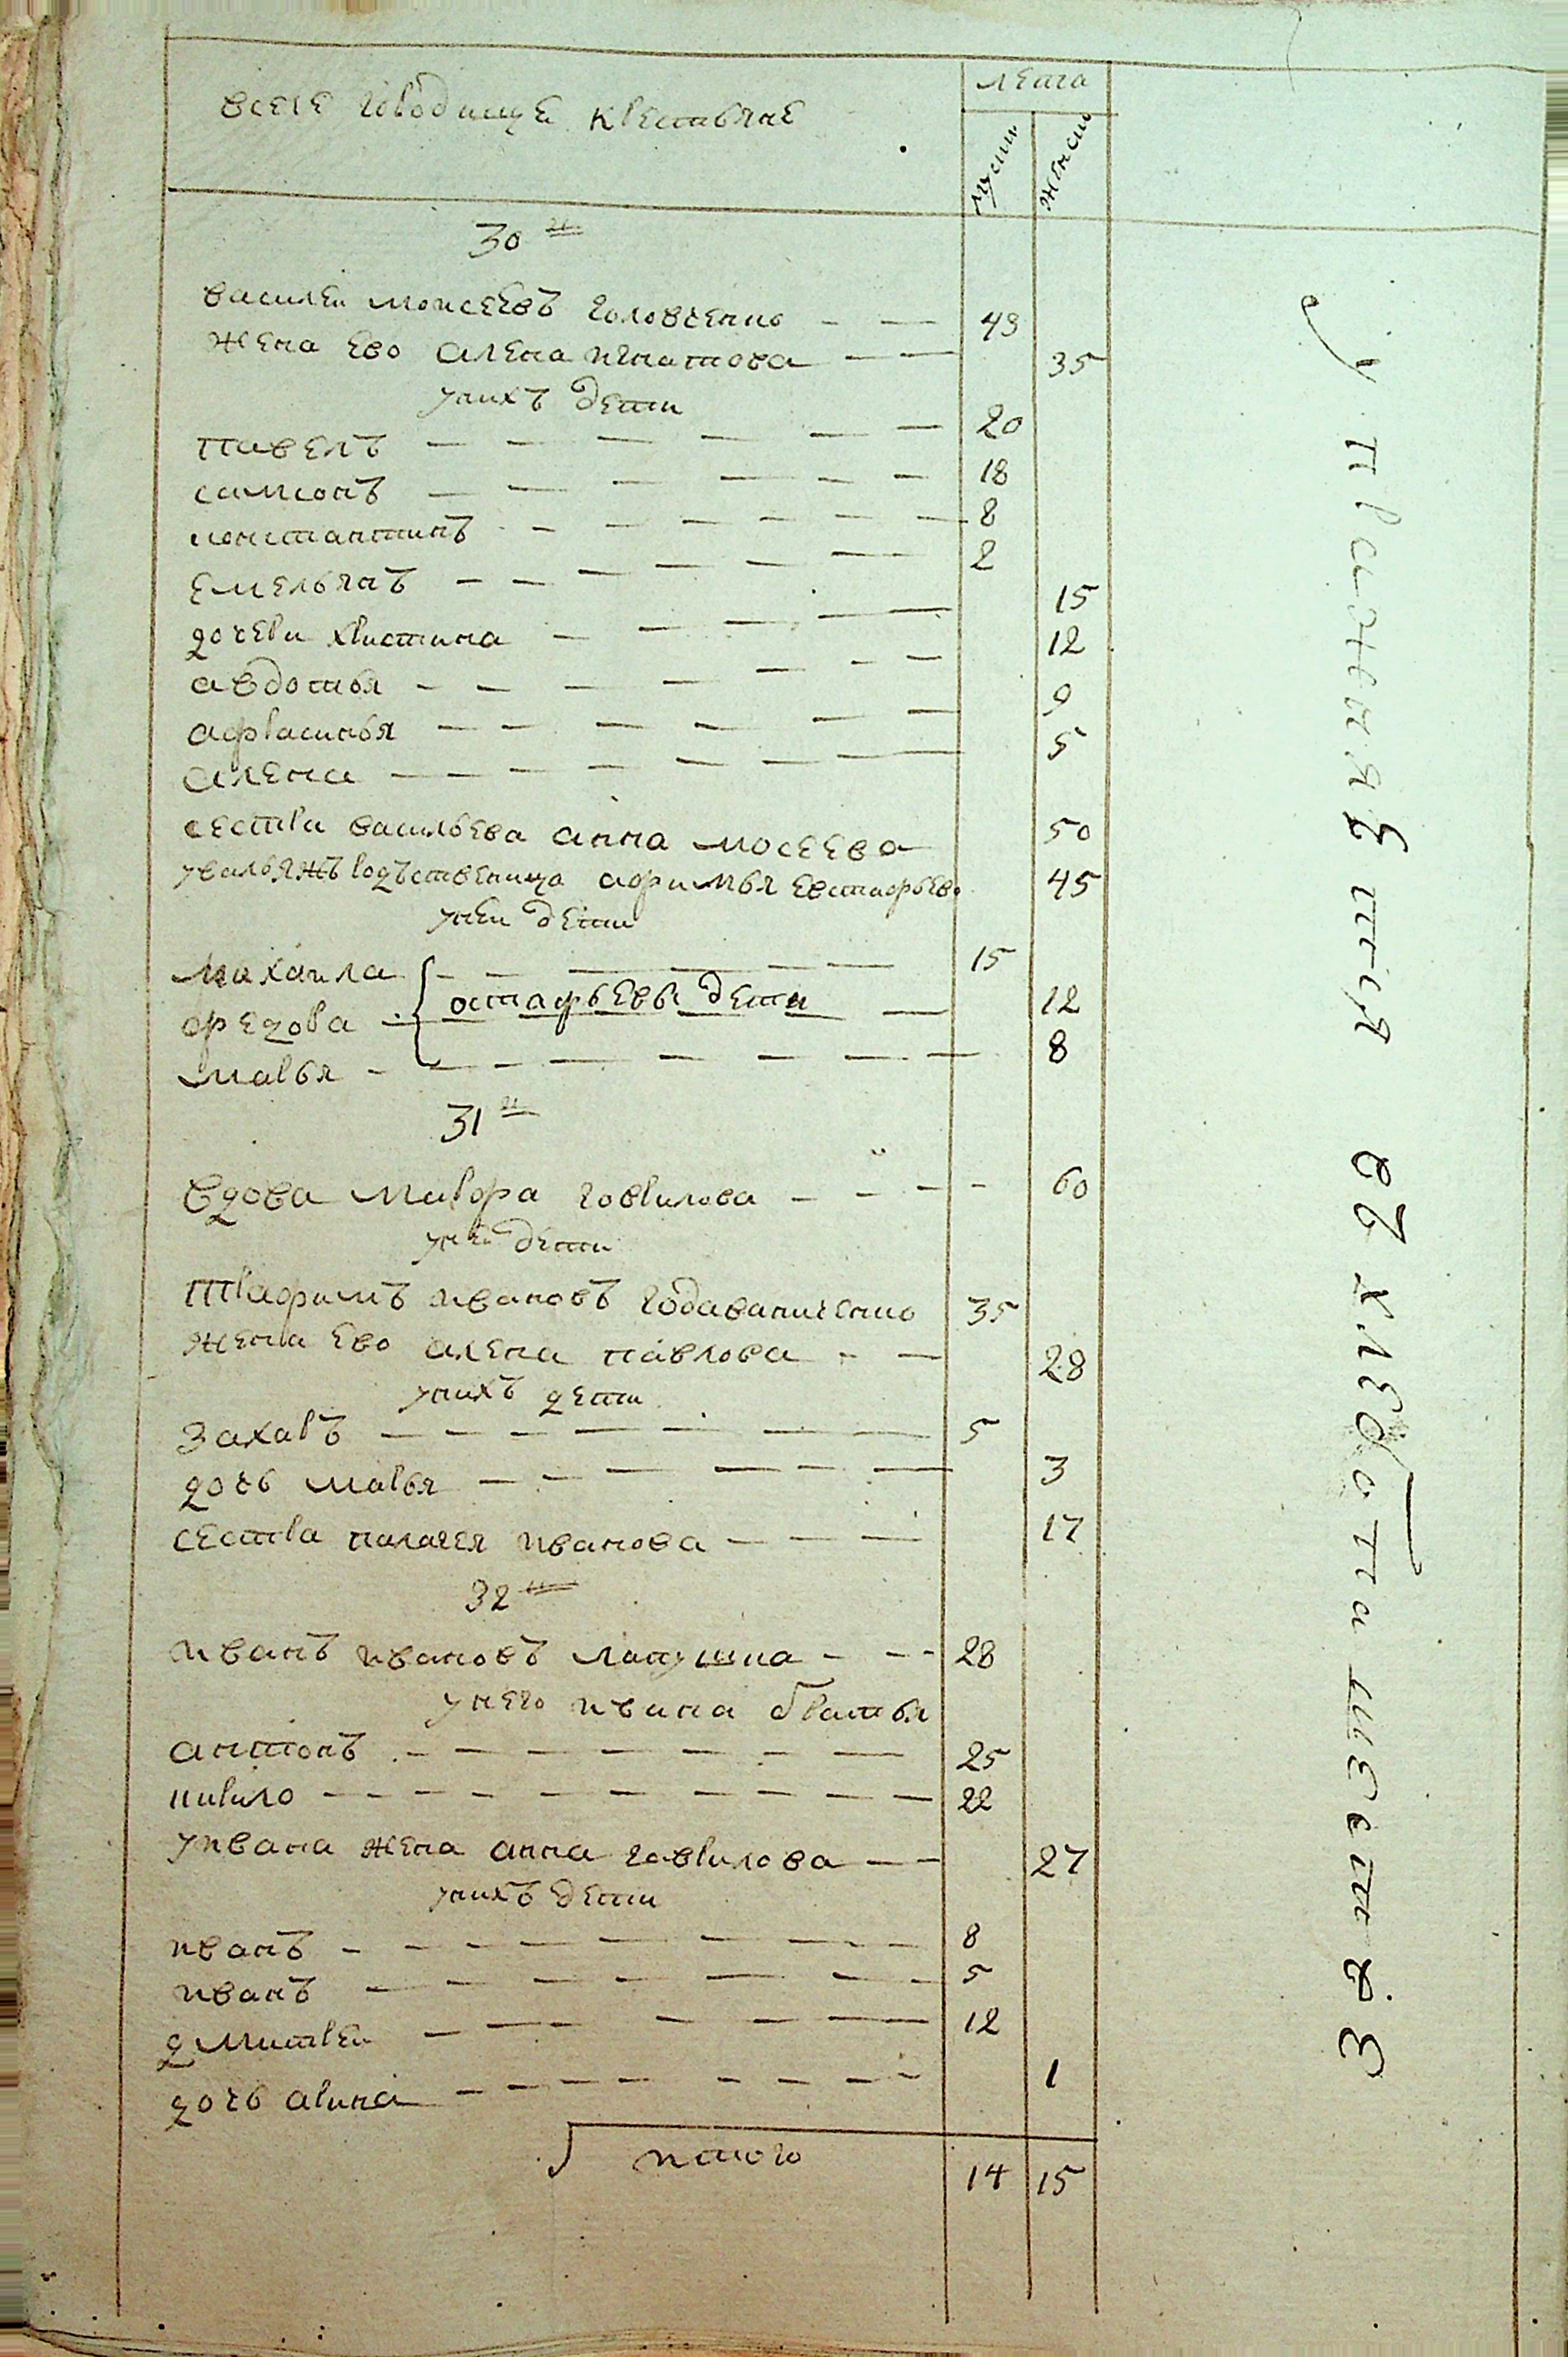 лета
вселе городище крестьяне
муски женски
30 и
василеи моисеевъ головченко 43
жена ево алена игнатова 35
унихъ дети
павелъ 20
самсонъ 18
константинъ 8
емельянъ 2
дочери христина 15
авдотья 12
афрасинья 9
алена 5
сестра васильева анна мосеева 50
родъственница афимья евстафьева 45
уней дети
михаила 15
остафьевы дети
федора 12
марья 8
31 и
вдова мавора гаврилова 60
уней дети
трафимъ ивановъ 35
жена ево алена павлова 28
унихъ дети
захаръ 5
дочь марья 3
сестра палагея иванова 17
32 и
иванъ ивановъ лапушка 28
унего ивана братья
антонъ 25
кирило 22
уивана жена анна гаврилова 27
унихъ дети
иванъ 8
иванъ 5
дмитреи 12
дочь арина 1
итого 14 15